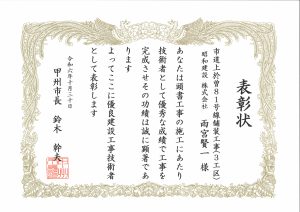 表彰状
市道上於曽81号線舗装工事(3工区)
昭和建設 株式会社
雨宮賢一 様
あなたは頭書工事の施工にあたり
技術者として優秀な成績で工事を
完成させその功績は誠に顕著であ
ります
よってここに優良建設工事技術者
として表彰します
令和六年十月二十日
甲州市長 鈴木 幹夫